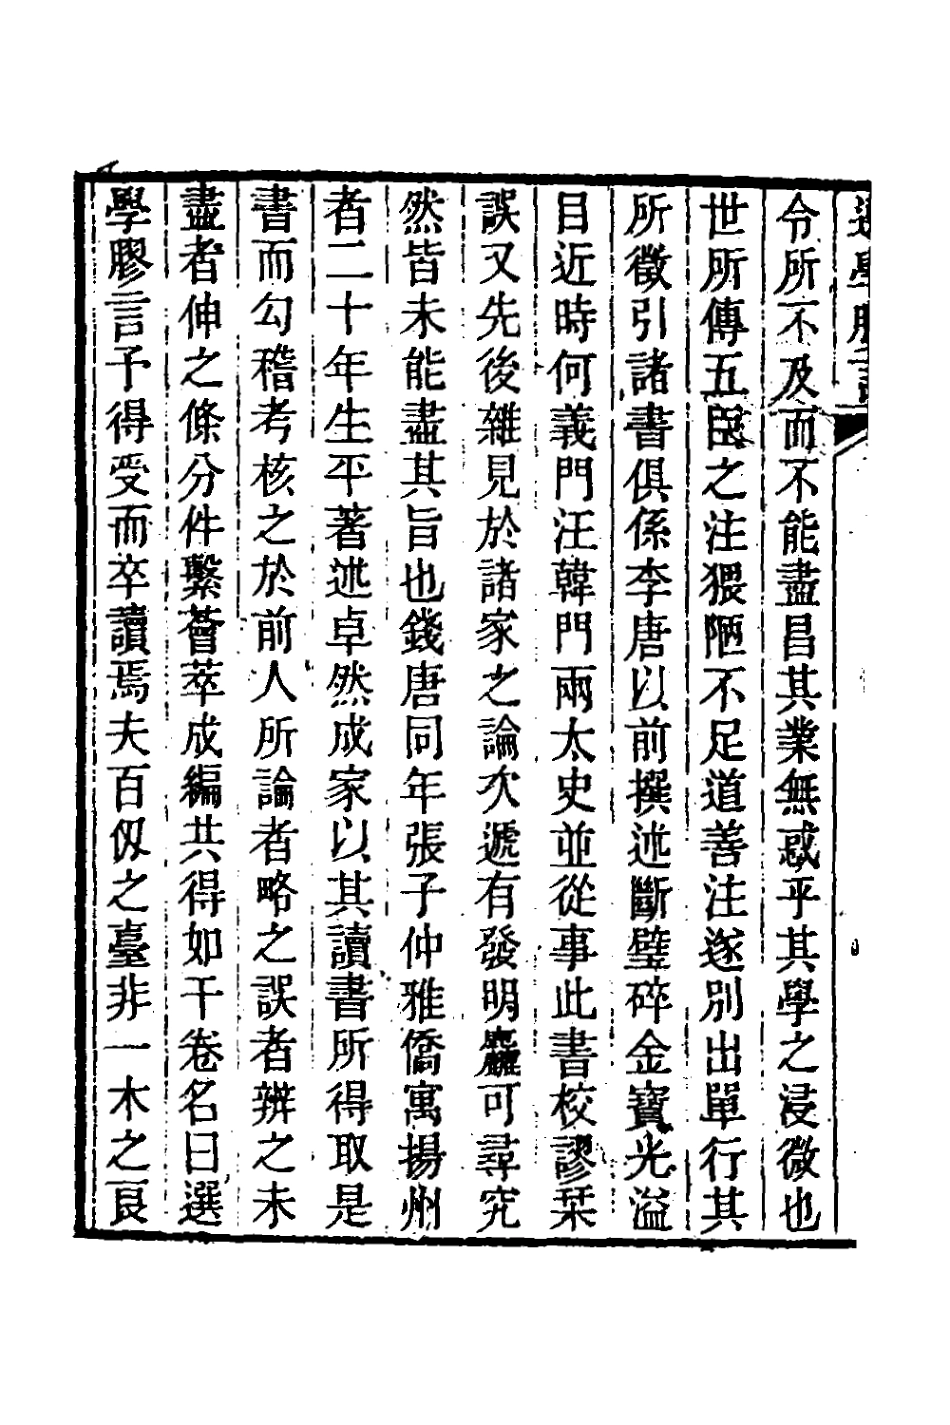 選學膠言
令所不及而不能盡昌其業無惑乎其學之浸微也
世所傳五臣之注猥陋不足道善注遂別出單行其
所徵引諸書俱係李唐以前撰述斷璧碎金寶光溢
目近時何義門汪韓門兩太史並從事此書校謬栞
誤又先後雜見於諸家之論次遞有發明麤可尋究
然皆未能盡其旨也錢唐同年張子仲雅僑寓揚州
者二十年生平著述卓然成家以其讀書所得取是
書而勾稽考核之於前人所論者略之誤者辨之未
盡者伸之條分件繫薈萃成編共得如干卷名曰選
學膠言予得受而卒讀焉夫百仭之臺非一木之良